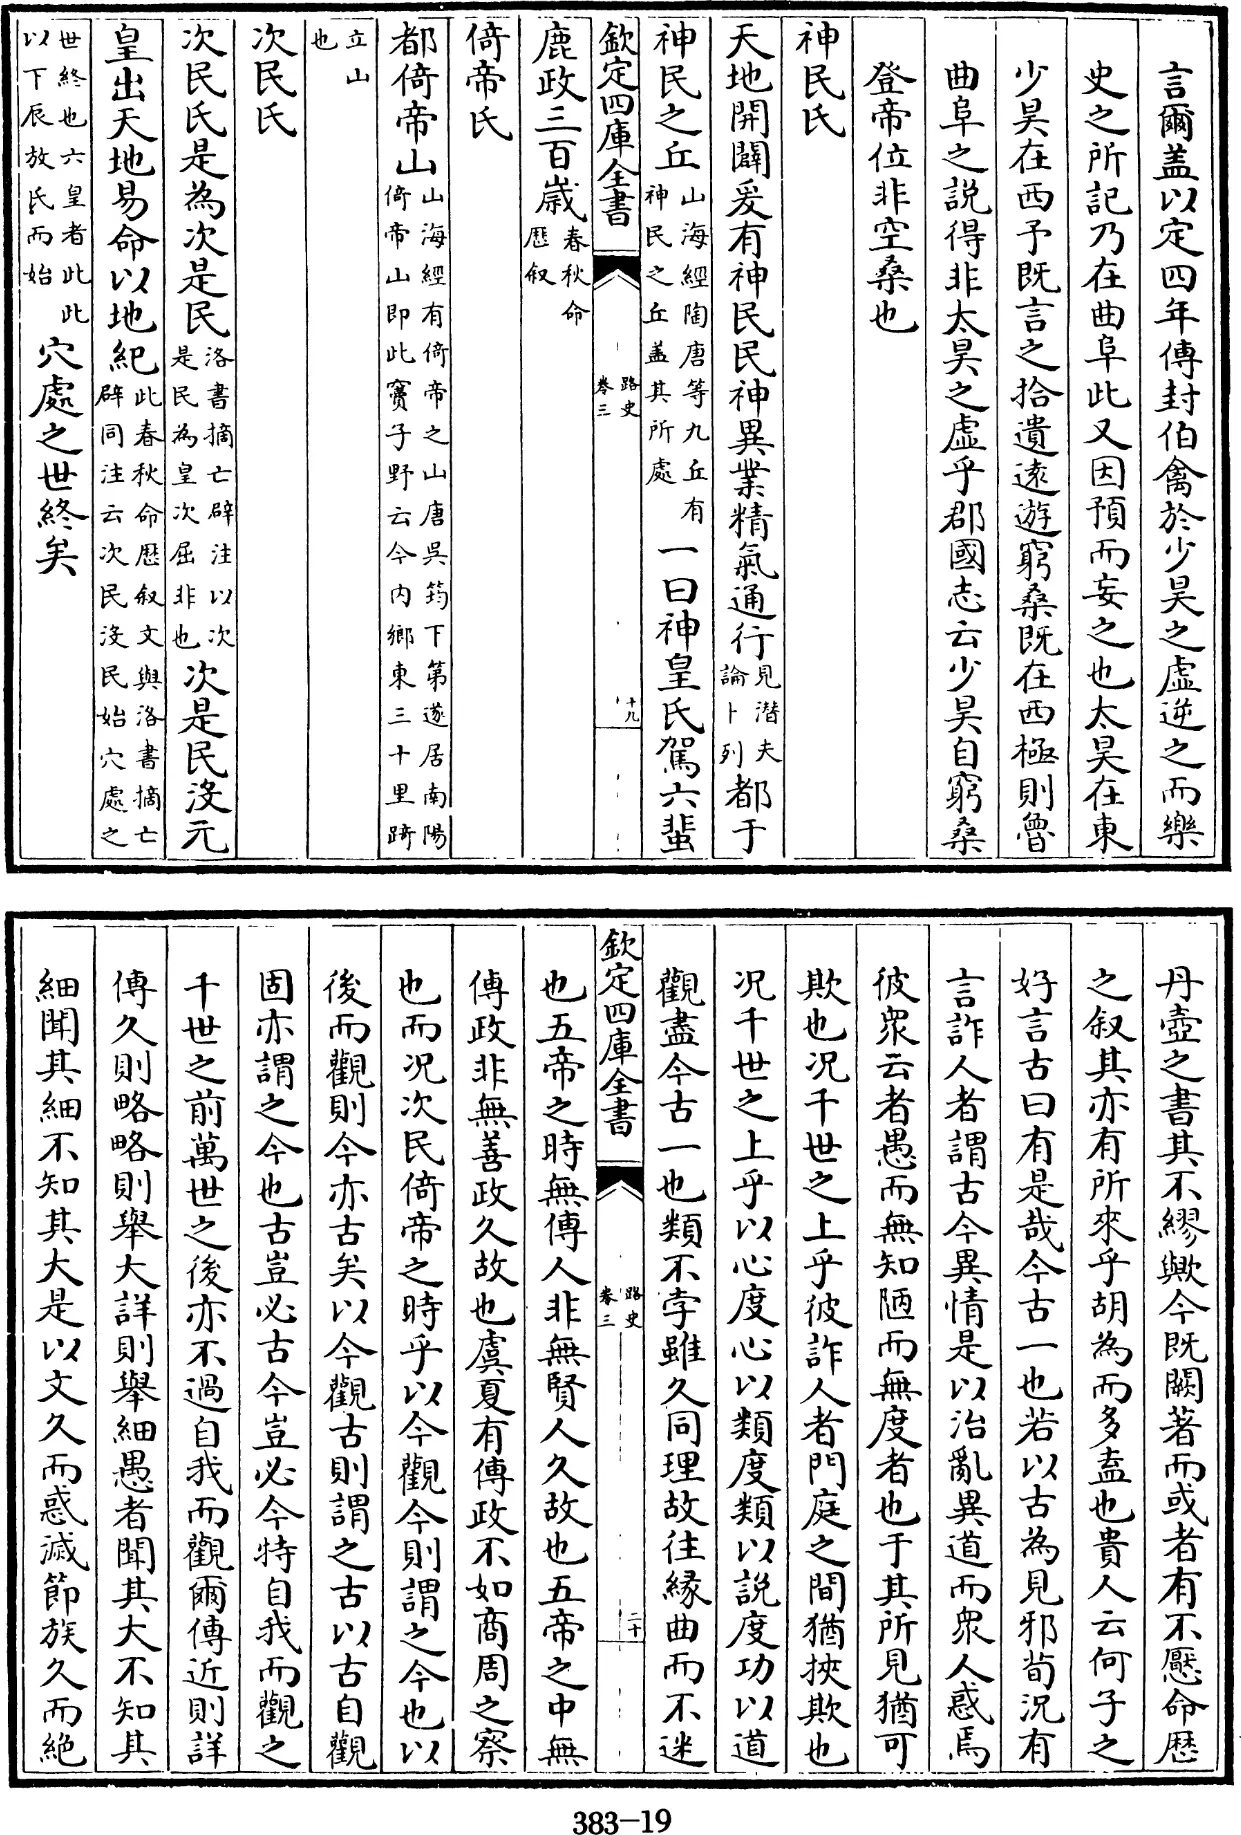 言爾盖以定四年傳封伯禽於少昊之虛逆之而樂
史之所記乃在曲阜此又因預而妄之也太昊在東
少昊在西予既言之拾遺逺遊窮桑既在西極則魯
曲阜之説得非太昊之虛乎郡國志云少昊自窮桑
登帝位非空桑也
神民氏
天地開闢爰有神民民神異業精氣通行見潛夫論卜列都于
神民之丘山海經陶唐等九丘有神民之丘盖其所處一曰神皇氏駕六蜚
欽定四庫全書
路史
卷三
十九
鹿政三百嵗春秋命歴叙
倚帝氏
都倚帝山山海經有倚帝之山唐吳筠下第遂居南陽倚帝山即此寶子野云今内鄉東三十里踦
立山也
次民氏
次民氏是為次是民洛書摘亡辟注以次是民為皇次屈非也次是民沒元
皇出天地易命以地紀此春秋命歴叙文與洛書摘亡辟同注云次民沒民始穴處之
世終也六皇者此此以下辰放氏而始穴處之世終矣
丹壺之書其不繆歟今既闕著而或者有不厭命歴
之叙其亦有所來乎胡為而多盍也貴人云何子之
好言古曰有是哉今古一也若以古為見邪荀況有
言詐人者謂古今異情是以治亂異道而衆人惑焉
彼衆云者愚而無知陋而無度者也于其所見猶可
欺也况千世之上乎彼詐人者門庭之間猶挾欺也
况千世之上乎以心度心以類度類以説度功以道
觀盡今古一也類不孛雖久同理故往緣曲而不迷
欽定四庫全書
路史
卷三
二十
也五帝之時無傳人非無賢人久故也五帝之中無
傳政非無善政久故也虞夏有傳政不如商周之察
也而况次民倚帝之時乎以今觀今則謂之今也以
後而觀則今亦古矣以今觀古則謂之古以古自觀
固亦謂之今也古豈必古今豈必今特自我而觀之
千世之前萬世之後亦不過自我而觀爾傳近則詳
傳久則略略則舉大詳則舉細愚者聞其大不知其
細聞其細不知其大是以文久而惑滅節族久而絶
383-19